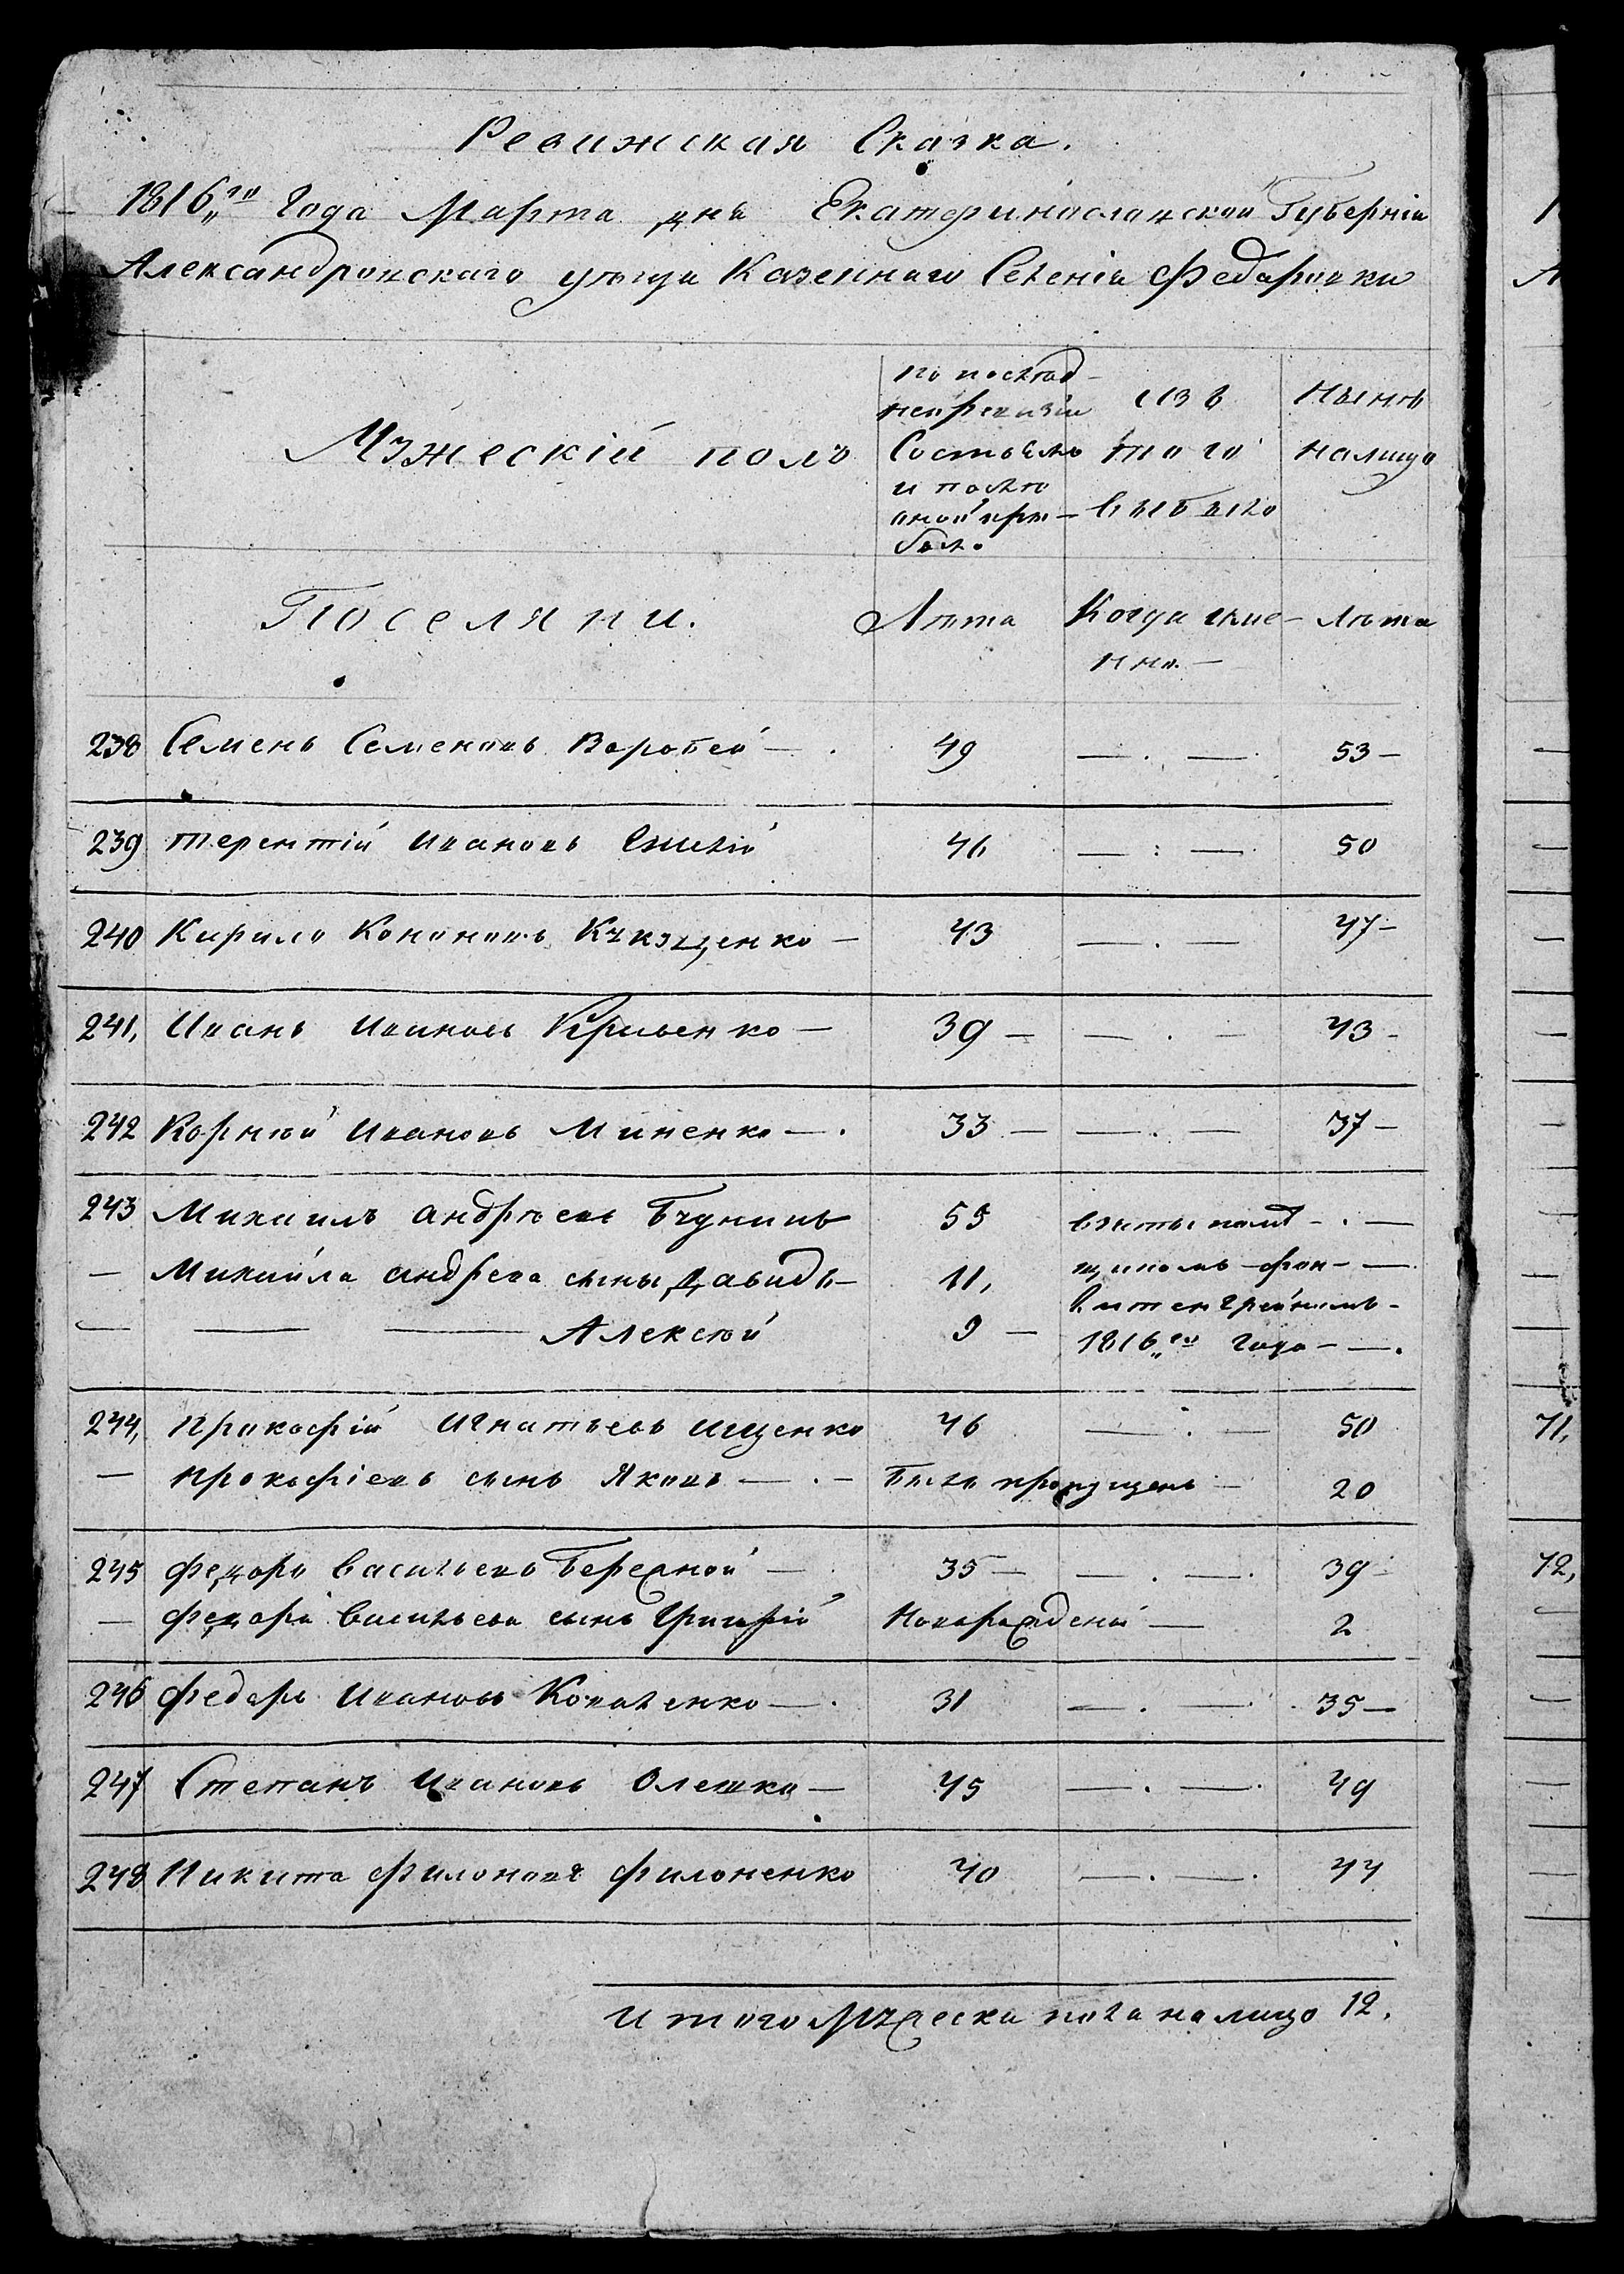 Ревижская Сказка.
1816,,го Года Марта дня Екатеринославской Губерніи
Александровскаго уѣзда Казеннаго Селенія Федаровки
Мужескій полъ
по послѣд-
ней ревизіи
Состояло
и послѣ
оной при-
было.
изъ
того
выбыло
Нынѣ
налицо
Поселяни.
Лѣта
Когда име-
нно.-
Лѣта
238 Семенъ Семеновъ Воробей - 49 - . - 53 -
239 Терентій Ивановъ 46 - : - 50
240 Кирило Кононовъ - 43 - . - 47 -
241, Иванъ Ивановъ - 39 - - . - 43 -
242 Корнѣй Ивановъ Миненко - . 33 - - . - 37 -
243 Михаилъ Андрѣевъ Будникъ 55 взяты помѣ - . -
- Михаила Андреева сыны Давидъ - 11, щикомъ фон - -
- - - Алексѣй 9 - Витенгрейномъ -
1816,,го года - - .
244, Прокофій Игнатьевъ Ищенко 46 - . - 50
- Прокофіевъ сынъ Яковъ - . - Былъ пропущенъ - 20
245 Федоръ Васильевъ Бережной - 35 - - . - . 39
- Федора Васильева сынъ Григорій Новорожденый - 2
246 Федоръ Ивановъ Коваленко - . 31 - . - . 35 -
247 Степанъ Ивановъ Олешко - 45 - . - . 49
248 Никита Филоновъ Филоненко 40 - . - . 44
Итого Мужеска пола налицо 12.
71,
72,